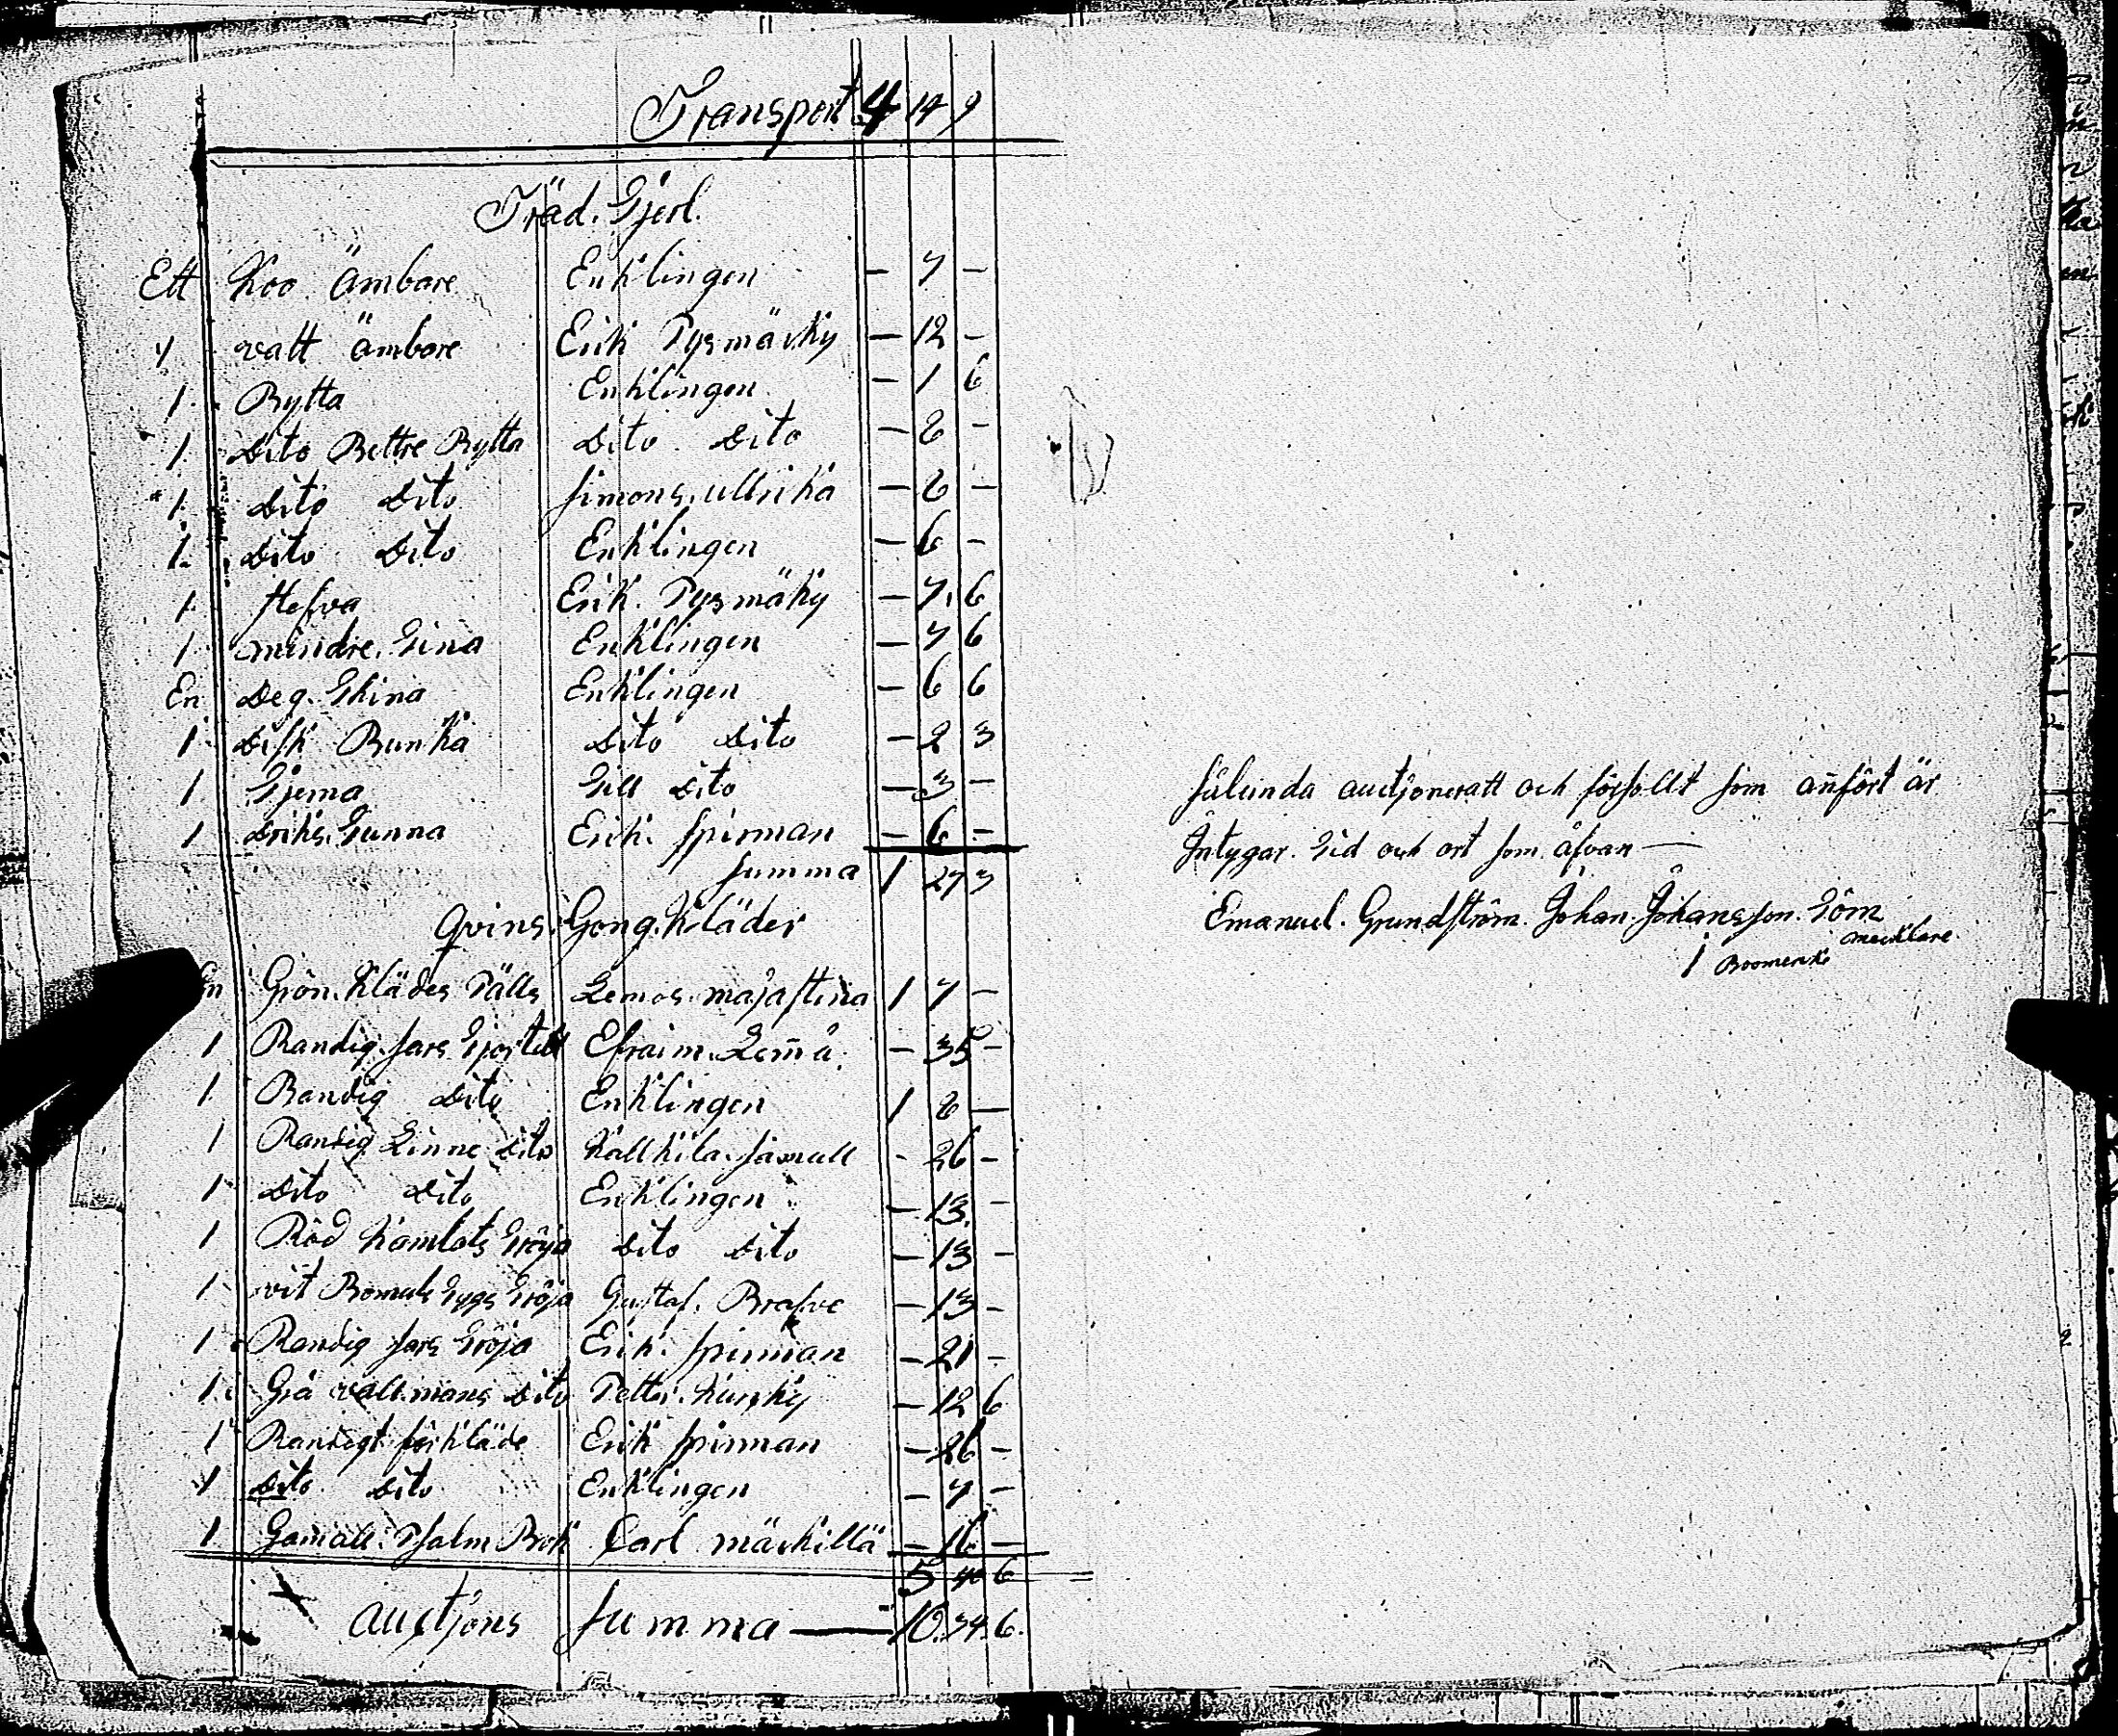 Transport 4 14 9
Träd. Gjerl.
Ett Koo ämbare Enklingen — 7 —
1 vatt ämbare Erik Pysmäcky — 12 —
1 Bytta Enklingen — 1 6
1 Dito Bettre Bytta Dito Dito — 8 —
1 Dito Dito Simons. ullrika — 8 —
1 Dito Dito Enklingen — 6 —
1 Stefva Erik. Pysmäky — 7 6
1 mindre. Tina Enklingen — 7 6
En Deg. Thina Enklingen — 6 6
1 Disk Bunka Dito Dito — 2 3
1 Tjema Till Dito — 3 —
1 Driks. Tunna Erik. Spinman — 6 —
Summa 1 27 3
Qvins. Gong. Kläder
En Grön. Klädes Pälls Lemos. majastina 1 7 —
1 Randig. sars Efraim. Lemå — 35 —
1 Randig Dito Enklingen 1 8 —
1 Randig Linne Dito Kallkila. Samull - 26 —
1 Dito Dito Enklingen — 13 —
1 Röd Kamlots Tröja Dito Dito — 13 —
1 vit Bomuls Tygs Tröja Gustaf. Brafve — 13 —
1 Randig sars Tröja Erik. Spinman — 21 —
1 Grå vallmans Dito Petter. Kursky — 12 6
1 Randigt förkläde Erik Spinman — 26 —
1 Dito Dito Enklingen — 7 —
1 Gamall. Psalm Bok Carl mäckillä — 16 —
5 6
auctjons Summa — 10. 34. 6.
Sålunda auctjoneratt och försollt som anfört är
Intygar. Tid och ort som åfvan —
Emanuel. Grundström. Johan. Johansson. Töm
mecklare
1 Boomerk